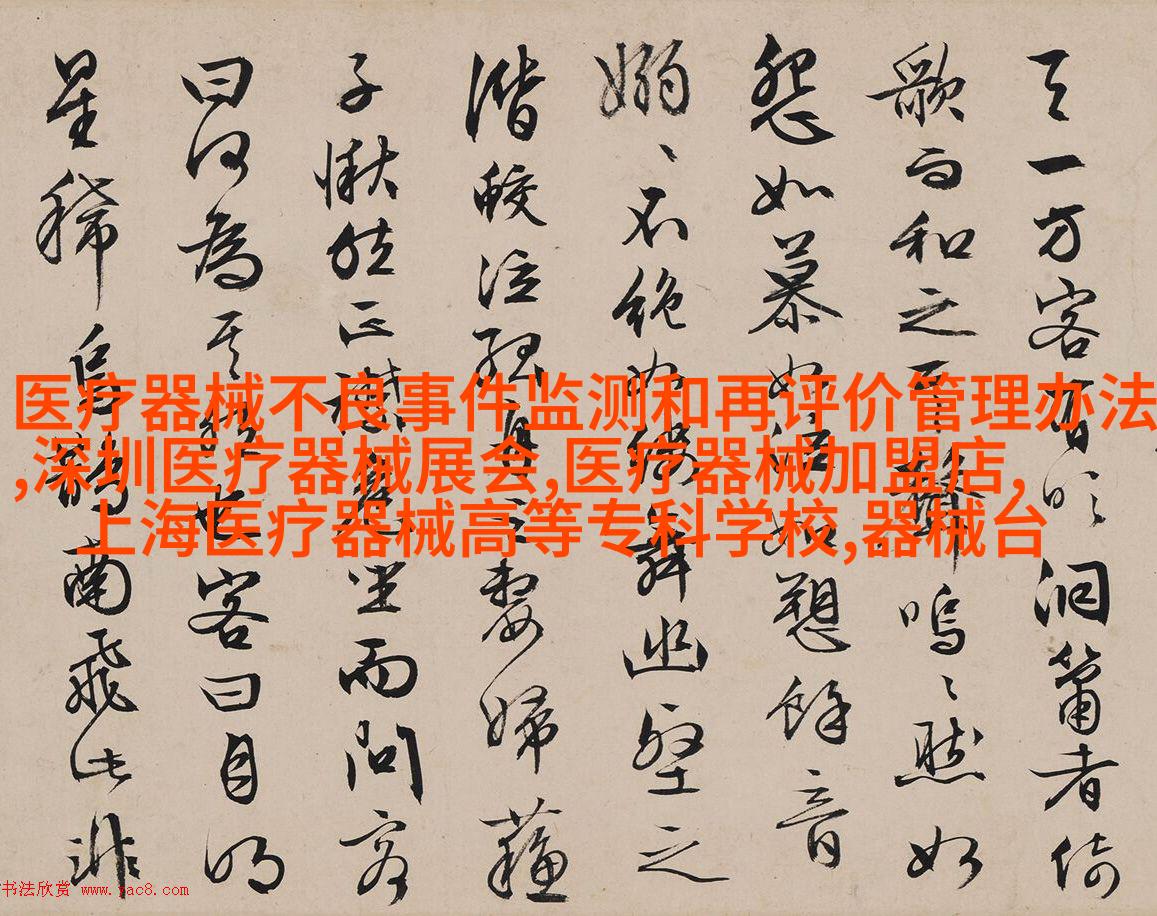 天一方客有吹洞簫者倚
歌而和之其聲嗚〻然如
怨如慕如泣如愬餘音
嫋〻不絕如縷舞幽壑之
潛蛟泣孤舟之嫠婦蘓
子愀然正襟危坐而問客
曰何為其然也客曰月明
星稀烏鵲南飛此非
医疗器械不良事件监测和再评价管理办法
,深圳医疗器械展会,医疗器械加盟店,
上海医疗器械高等专科学校,器械台
书法欣赏 www.yac8.com